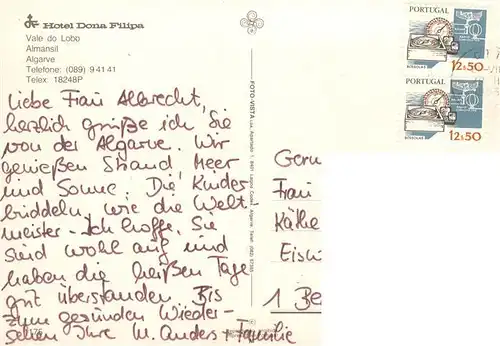 Hotel Dona Filipa
Vale do Lobo
Almansil
Algarve
Telefone: (089) 9 41 41
Telex 18248P
Liebe Frau Albrecht,
herzlich grüße ich Sie
von der Algarve. Wir
genießen Strand, Meer
und Sonne. Die Kinder
buddeln, wie die Welt-
meister. Ich hoffe, Sie
sind wohl auf und
haben die heißen Tage
gut überstanden. Bis
zum gesunden Wieder-
sehen Ihre M. Anders + Familie
FOTO-VISTA
PORTUGAL
BITÁCULAS
12$50
PORTUGAL
12$50
Frau
Käthe
1 Be